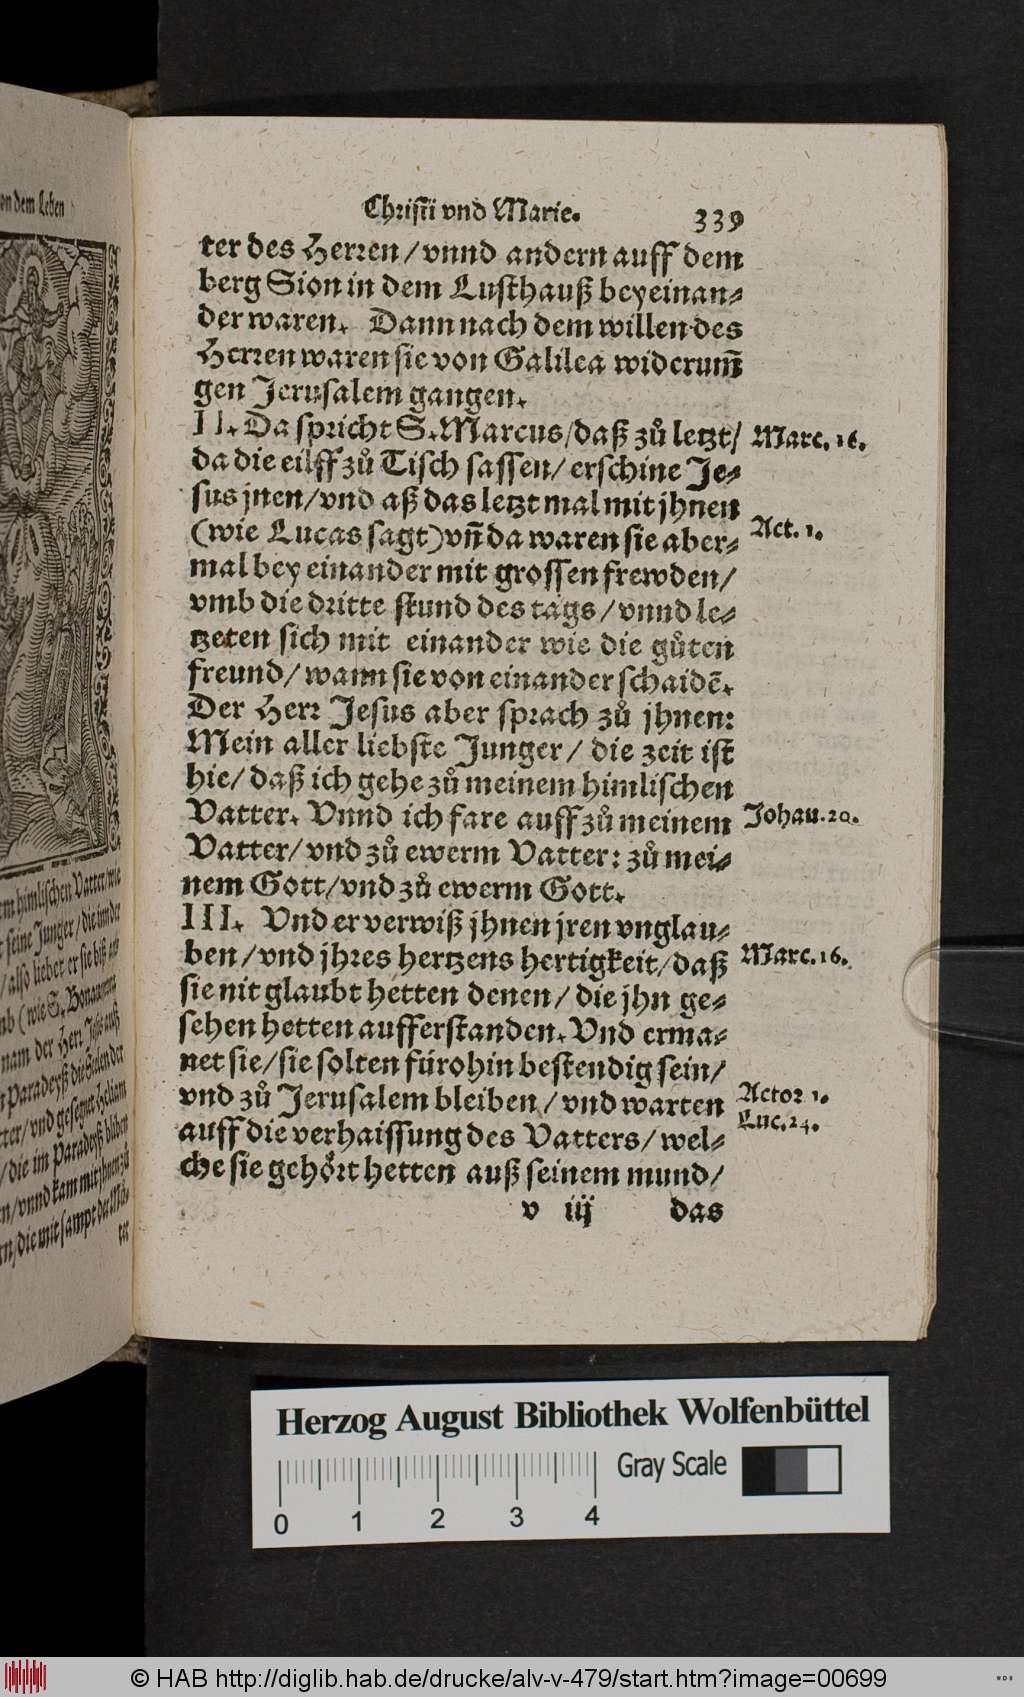 on dem Leben
em himlischen Vatter/wie
t seine Junger/die inn der
/also lieber er sie biß ans
mb (wie S. Bonauentura
nam der Herr Jesus auß
m Paradeyß die Seelen der
tter/vnd gesegnet Heliam
/die im Paradeyß bliben
en/vnnd kam mit jhnen zů
rn/die mit sampt der Mů-
ter
Christi vnd Marie. 339
ter des Herren/vnnd andern auff dem
berg Sion in dem Lusthauß beyeinan-
der waren. Dann nach dem willen des
Herren waren sie von Galilea widerum̃
gen Jerusalem gangen.
II. Da spricht S. Marcus/daß zů letzt/ Marc. 16.
da die eilff zů Tisch sassen/erschine Je-
sus jnen/vnd aß das letzt mal mit jhnen
(wie Lucas sagt) vn̄ da waren sie aber- Act. 1.
mal bey einander mit grossen frewden/
vmb die dritte stund des tags/vnnd le-
tzeten sich mit einander wie die gůten
freund/wann sie von einander schaidē.
Der Herr Jesus aber sprach zů jhnen:
Mein aller liebste Junger/die zeit ist
hie/daß ich gehe zů meinem himlischen
Vatter. Vnnd ich fare auff zů meinem Johan. 20.
Vatter/vnd zů ewerm Vatter: zů mei-
nem Gott/vnd zů ewerm Gott.
III. Vnd er verwiß jhnen jren vnglau-
ben/vnd jhres hertzens hertigkeit/daß Marc. 16.
sie nit glaubt hetten denen/die jhn ge-
sehen hetten aufferstanden. Vnd erma-
net sie/sie solten fürohin bestendig sein/
vnd zů Jerusalem bleiben/vnd warten Actor 1.
auff die verhaissung des Vatters/wel- Luc. 24.
che sie gehört hetten auß seinem mund/
v iij das
Herzog August Bibliothek Wolfenbüttel
Gray Scale
0 1 2 3 4
© HAB http://diglib.hab.de/drucke/alv-v-479/start.htm?image=00699